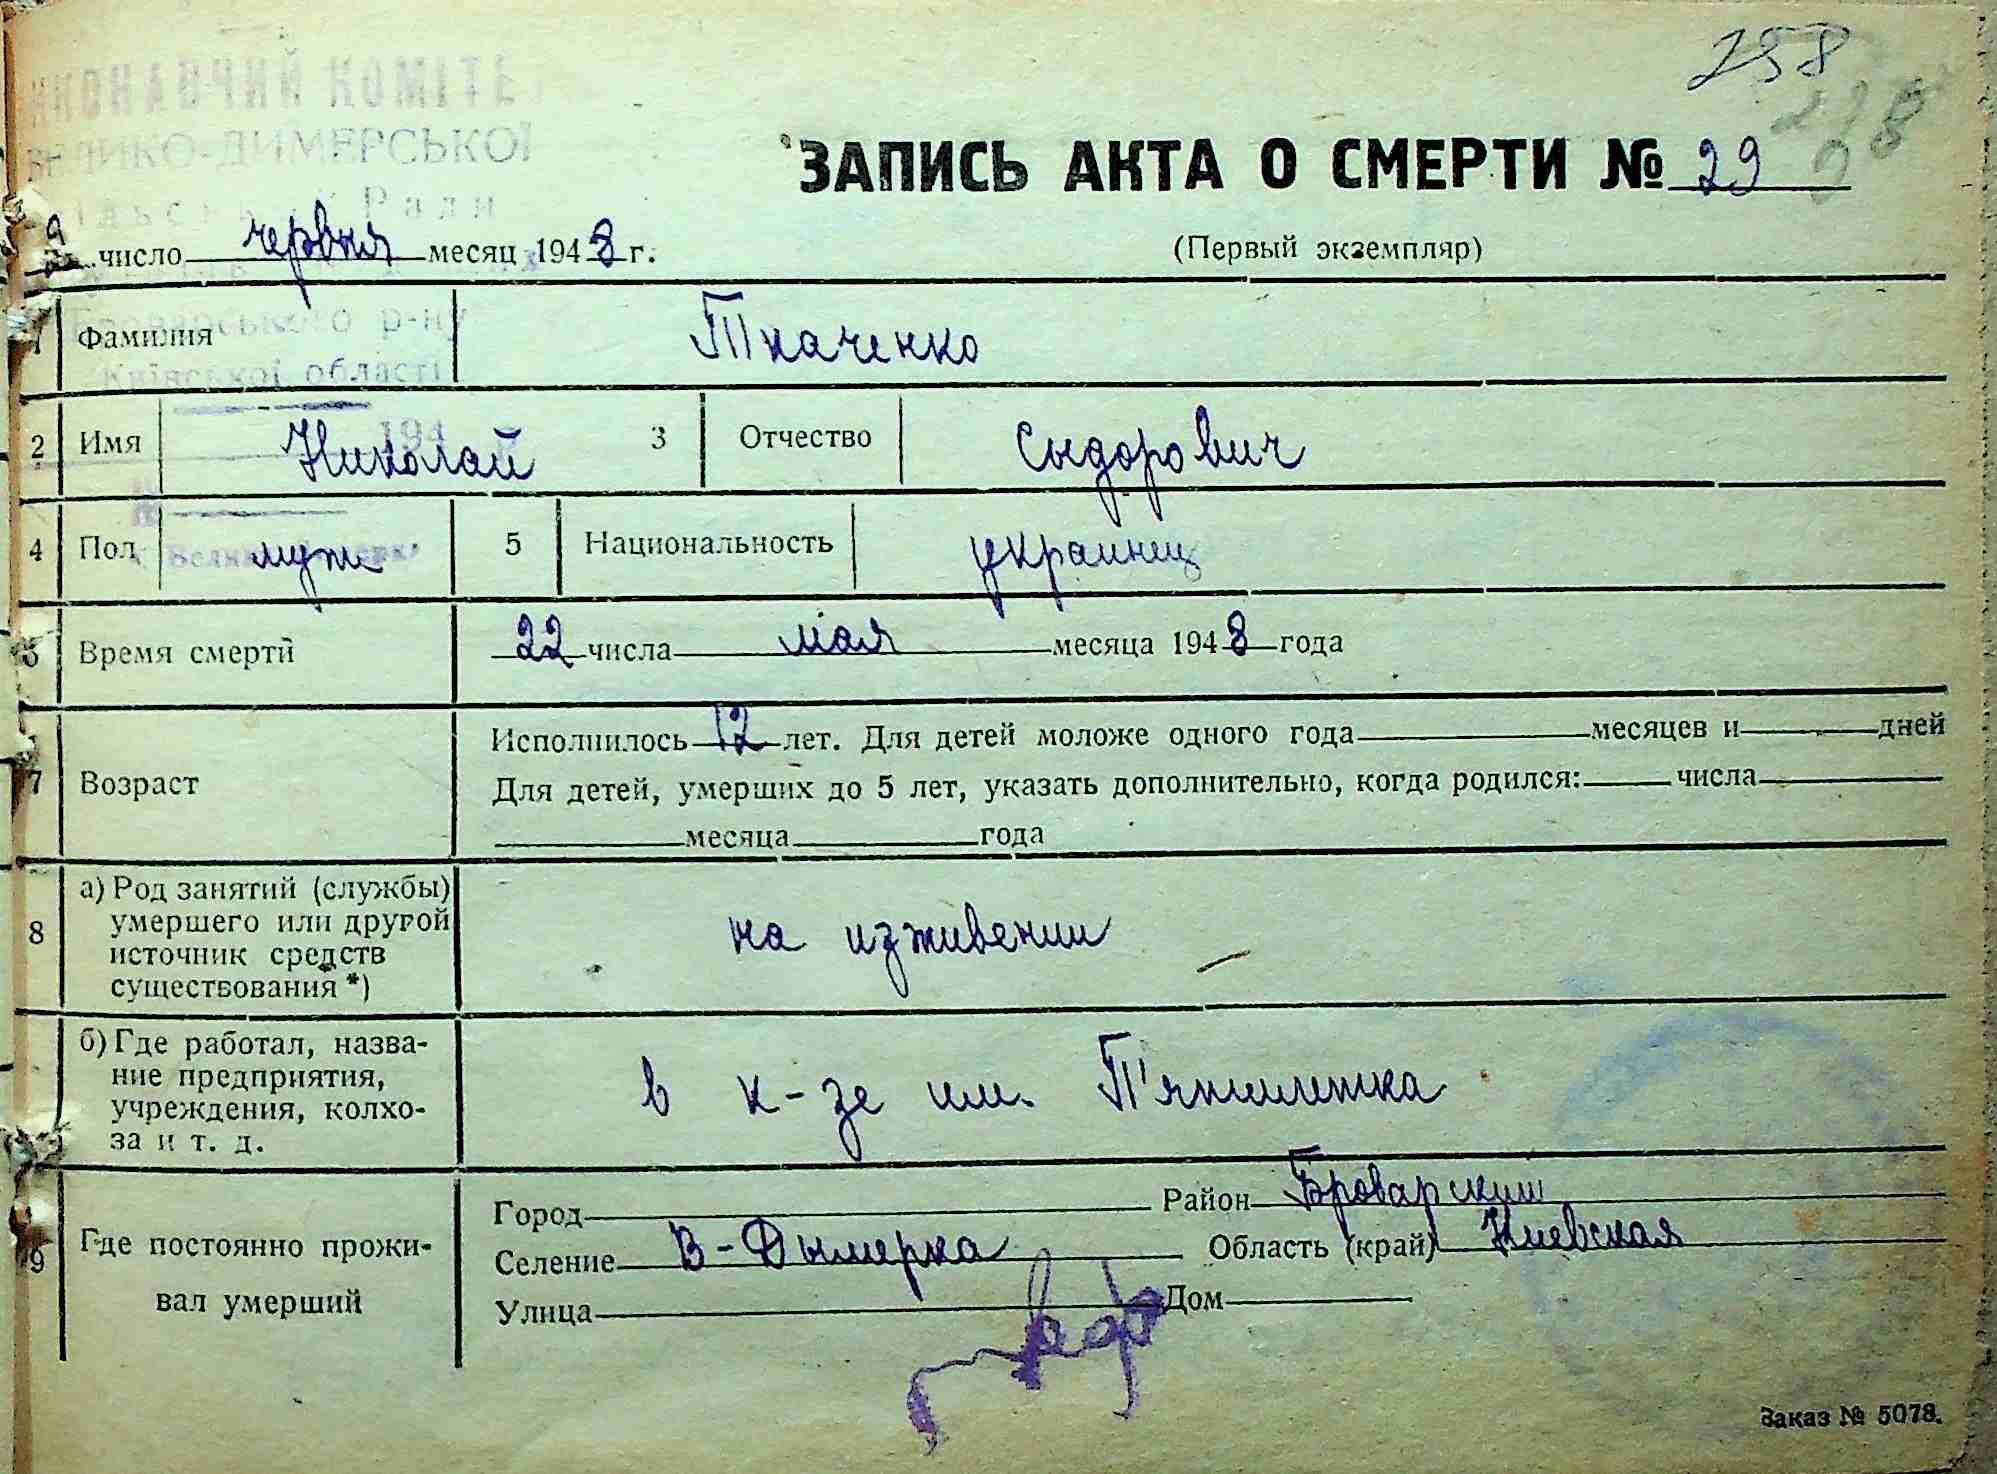 258
ВИКОНАВЧИЙ КОМІТЕТ
ВЕЛИКО-ДИМЕРСЬКОЇ
Ради
Броварського р-ну
Київської області
194
ЗАПИСЬ АКТА О СМЕРТИ № 29
число червня месяц 1948 г.
(Первый экземпляр)
1 Фамилия Ткаченко
2 Имя Николай 3 Отчество Сыдорович
4 Пол муж 5 Национальность украинец
6 Время смерти 22 числа мая месяца 1948 года
7 Возраст
Исполнилось 12 лет. Для детей моложе одного года месяцев и дней
Для детей, умерших до 5 лет, указать дополнительно, когда родился: числа
месяца года
8 а) Род занятий (службы)
умершего или другой
источник средств
существования *)
на изживении
б) Где работал, назва-
ние предприятия,
учреждения, колхо-
за и т. д.
в к-зе им. П'ятилетка
9 Где постоянно прожи-
вал умерший
Город Район Броварский
Селение В-Дымерка Область (край) Киевская
Улица Дом
Заказ № 5078.